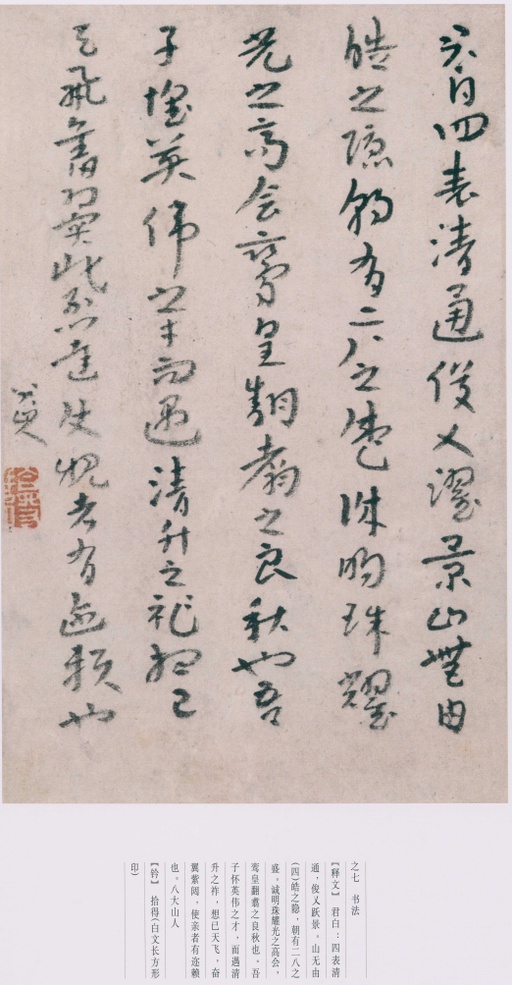 君白四表清通俊乂躍景山無由
皓之隱朝有二八之盛誠明珠耀
光之高会鸞皇翻翥之良秋也吾
子懷英偉之才而遇清升之祚想已
天飛奮翼紫闥使親者有邇賴也
八大山人
之七 书法
【释文】 君白：四表清
通，俊乂跃景。山无由
(四)皓之隐，朝有二八之
盛。诚明珠耀光之高会，
鸾皇翻翥之良秋也。吾
子怀英伟之才，而遇清
升之祚，想已天飞，奋
翼紫闼，使亲者有迩赖
也。八大山人
【钤】 拾得(白文长方形
印)